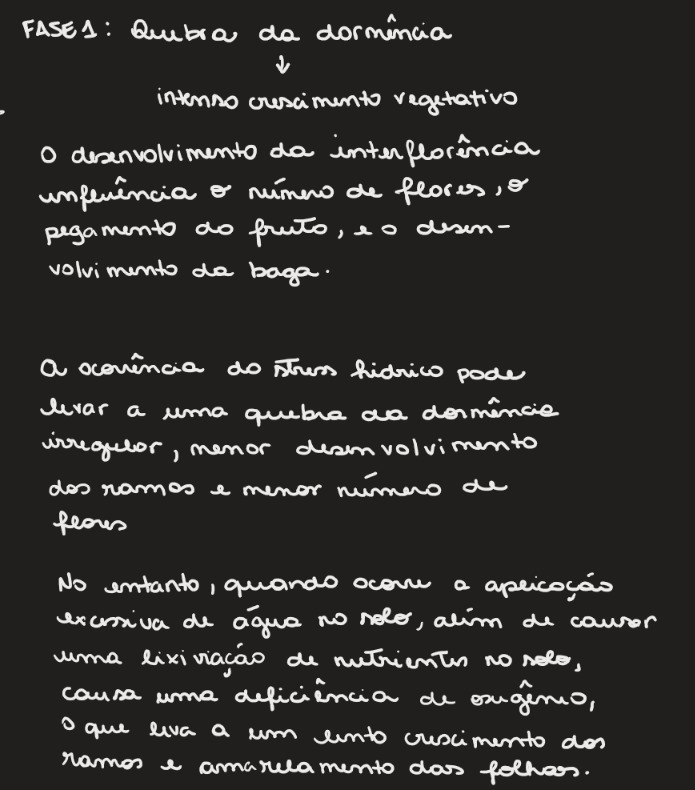 FASE 1: Quebra da dormência
↓
intenso crescimento vegetativo
O desenvolvimento da interflorência
influência o número de flores, o
pegamento do fruto, e o desen-
volvimento da baga.
A ocorrência do stress hídrico pode
levar a uma quebra da dormência
irregular, menor desenvolvimento
dos ramos e menor número de
flores
No entanto, quando ocorre a aplicação
excessiva de água no solo, além de causar
uma lixiviação de nutrientes no solo,
causa uma deficiência de oxigênio,
o que leva a um lento crescimento dos
ramos e amarelamento das folhas.